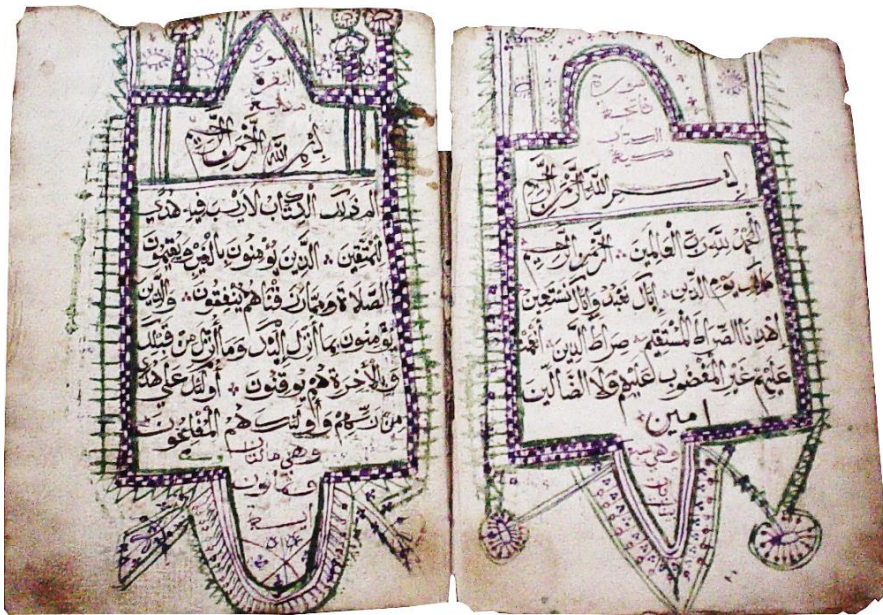 سورة
فاتحة
الكتاب
بسم الله الرحمن الرحيم
الحمد لله رب العالمين الرحمن الرحيم
مالك يوم الدين إياك نعبد وإياك نستعين
إهدنا الصراط المستقيم صراط الذين أنعمت
عليهم غير المغضوب عليهم ولا الضالين
امين
وهي سبع
سورة
البقرة
بسم الله الرحمن الرحيم
الم ذلك الكتاب لا ريب فيه هدى
للمتقين الذين يؤمنون بالغيب ويقيمون
الصلاة ومما رزقناهم ينفقون والذين
يؤمنون بما أنزل إليك وما أنزل من قبلك
وبالآخرة هم يوقنون أولئك على هدى
من ربهم وأولئك هم المفلحون
وهي مائتان
وثمانون
اية